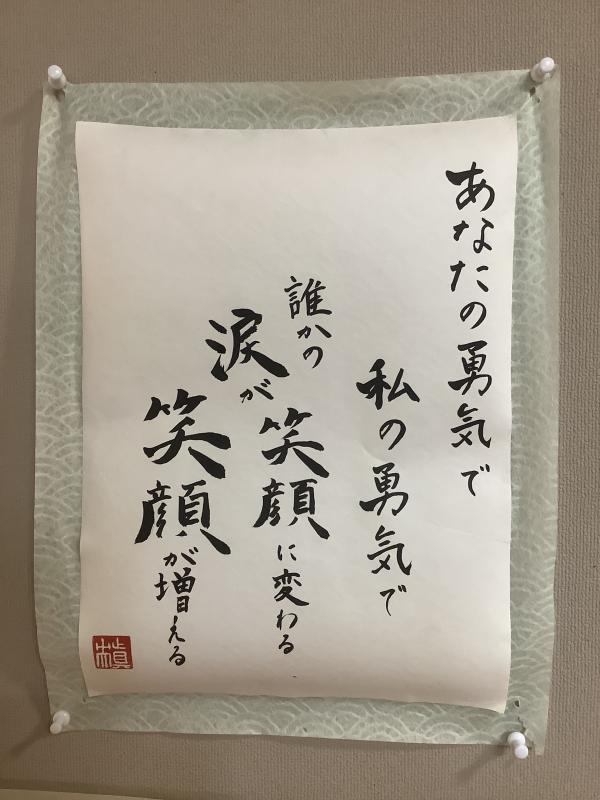 あなたの勇気で
私の勇気で
誰かの
涙が
笑顔に変わる
笑顔が増える